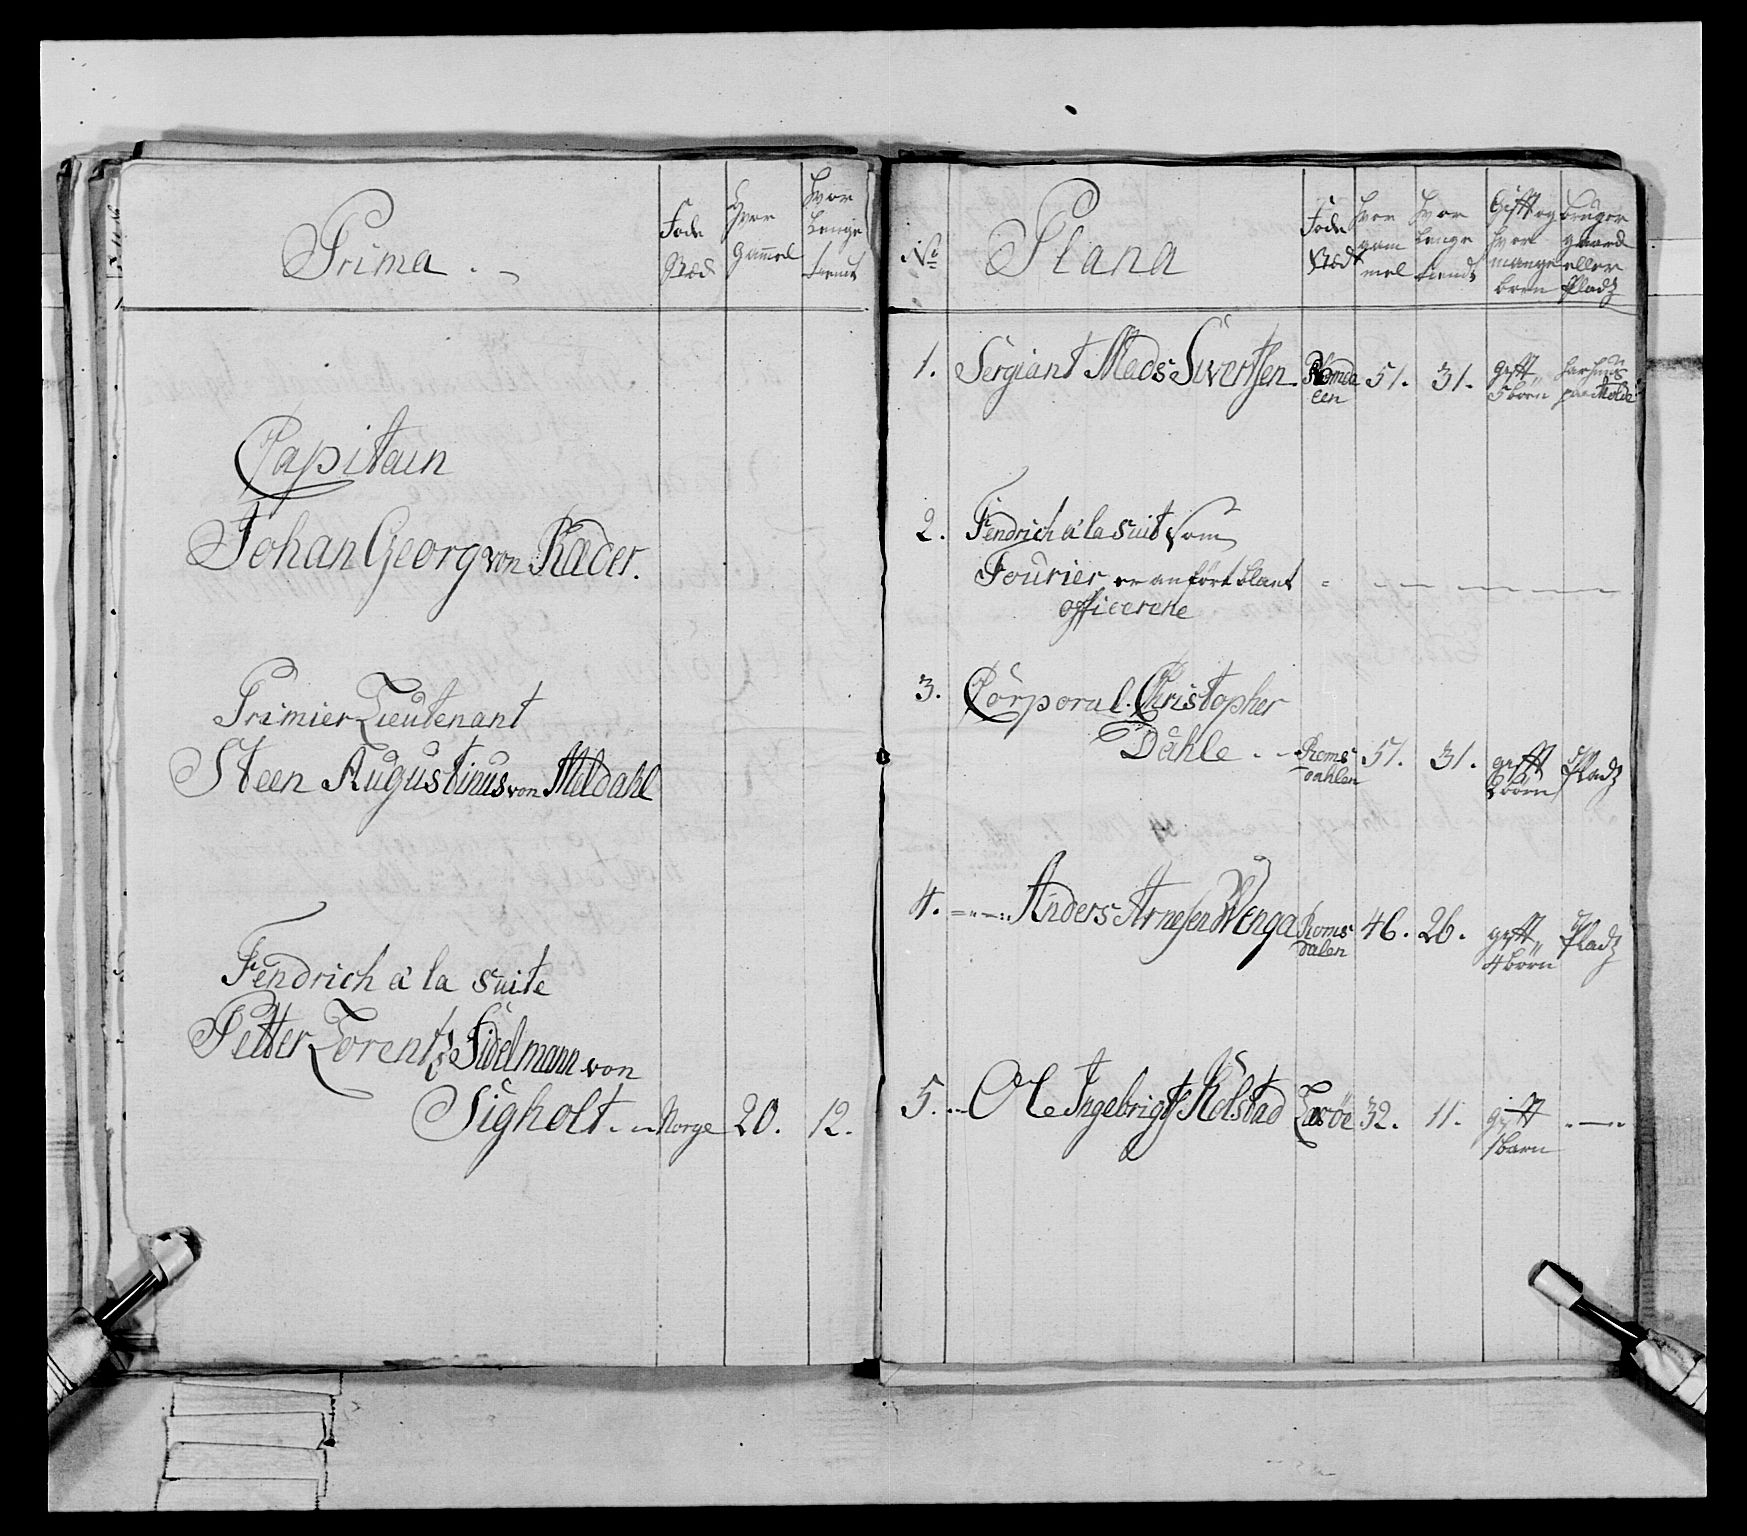 Prima.
Føde
Stæd
Hvor
Gammel
Hvor
Lenge
tient
Capitain
Johan Georg von Ræder.
Primier Lieutenant
Steen Augustinus von Meldahl
Fendrich a la suite
Petter Lorentz Fidelmann von
Sigholt. Norge 20. 12.
No
Plana
Føde
Stædt
Hvor
gam
mel
Hvor
lenge
tiendt
Gift og
hvor
mange
børn
bruger
gaard
eller
Pladz
1. Sergiant Mads Sivertsen. Romda 51. 31. gift
len 5 børn paa Molde
2. Fendrich a la suit som
Fourier er anført blant
officerene
3. Corporal. Christopher
Dahle. Roms 51. 31. gift Pladz
dahlen børn
4. Anders Arnesen Wenga Roms 46. 26. gift Pladz
dalen 4 børn
5. Ole Ingebrigts Kolstad 32. 11. gift
1 barn